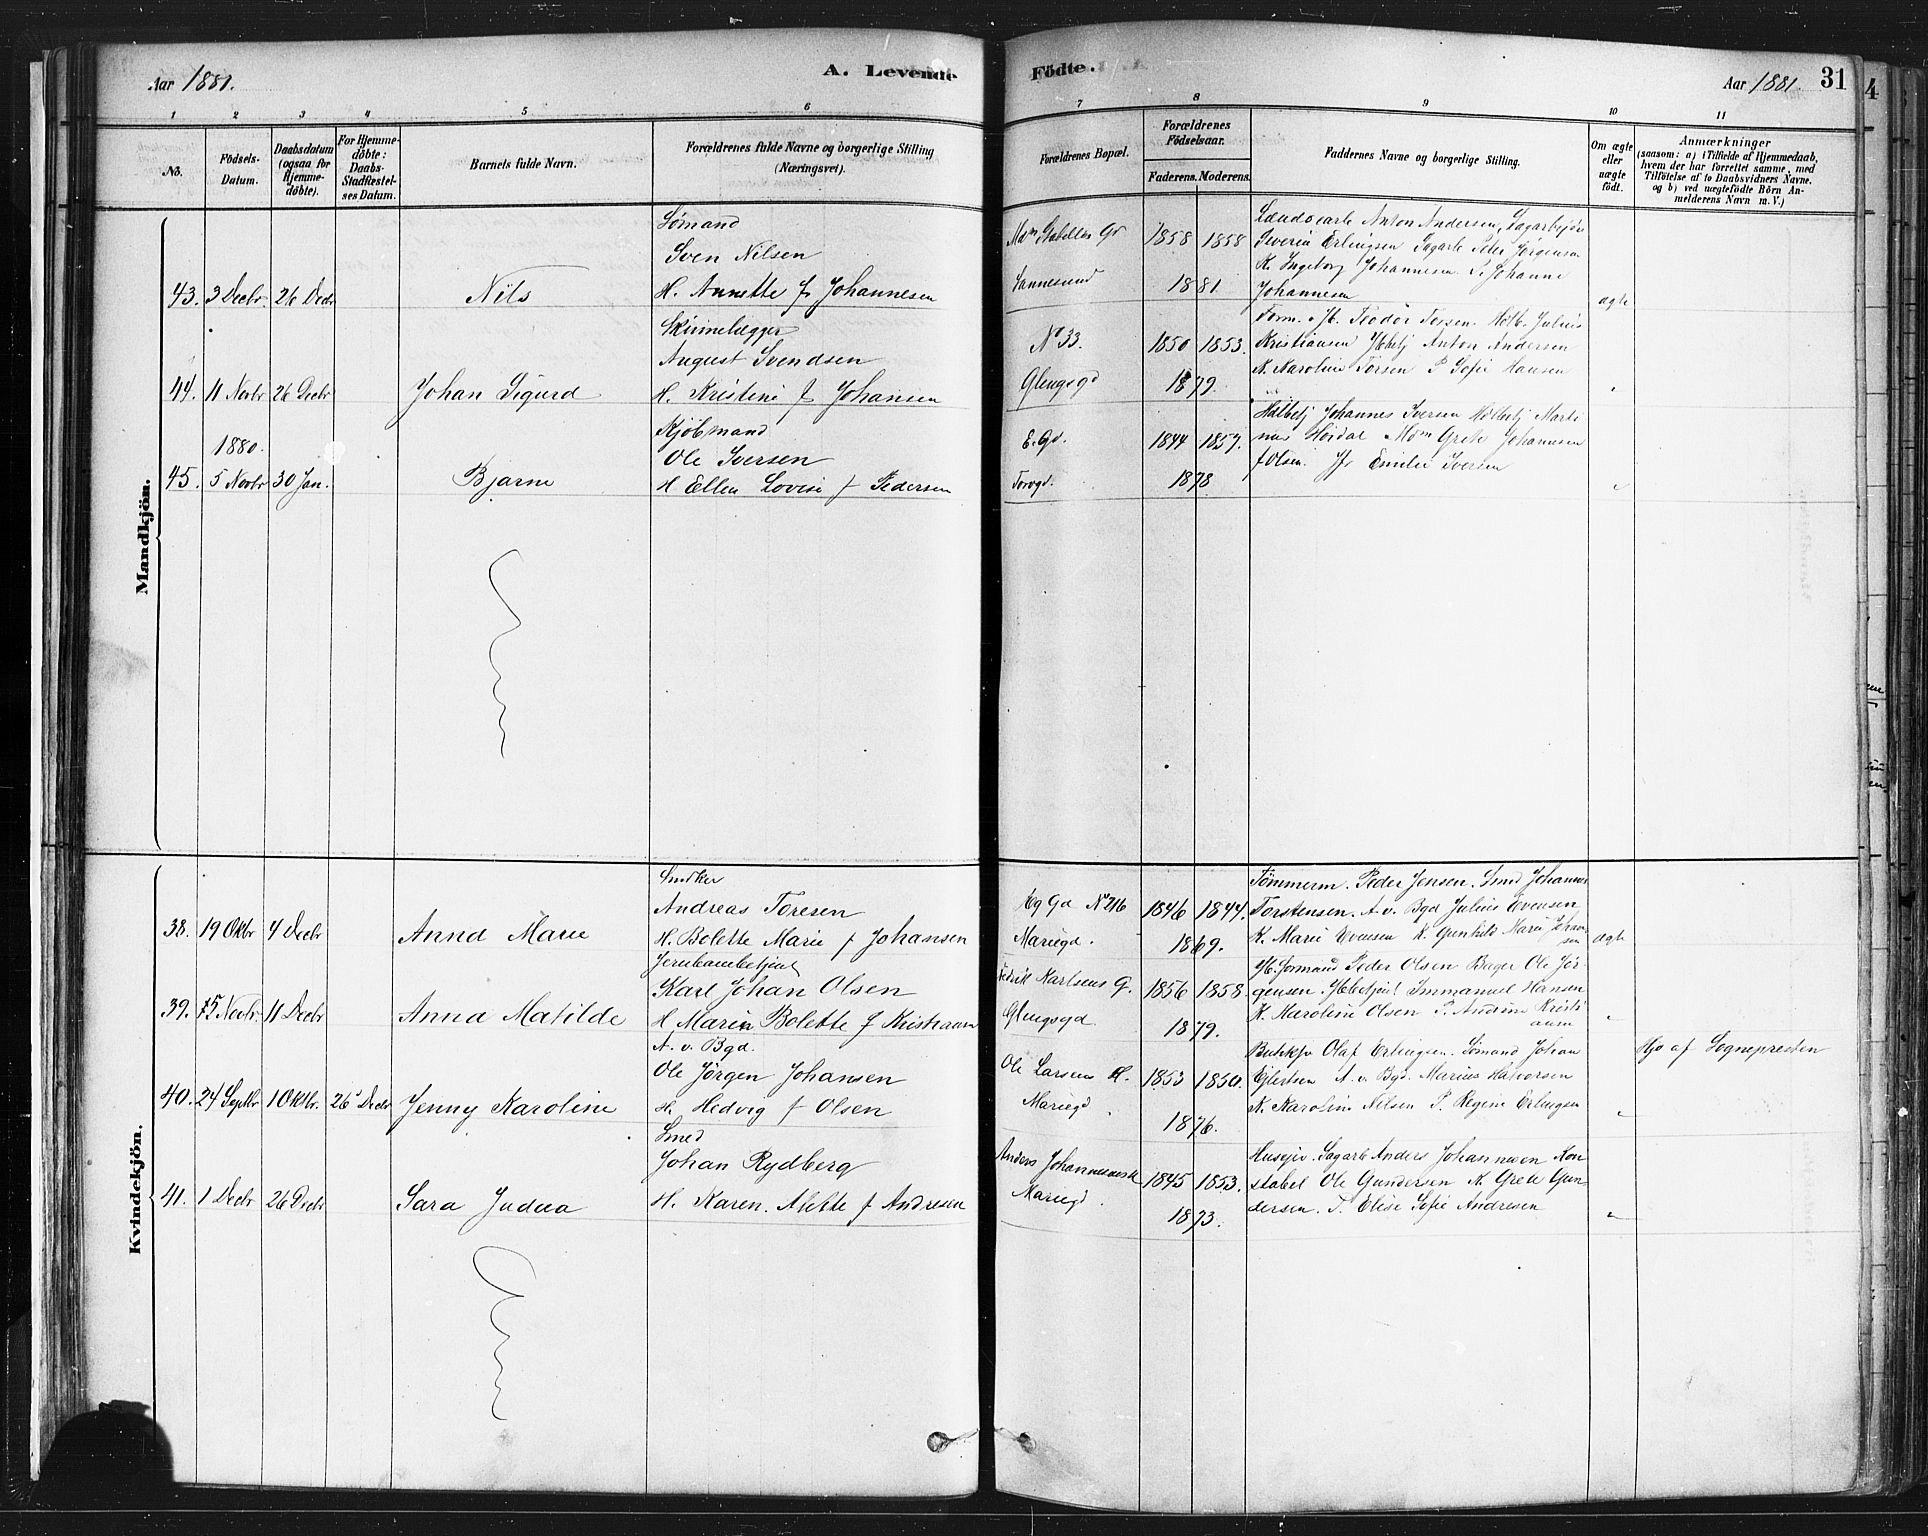 Aar 1881.
A. Levende
Födte.
Aar 1881.
31
4
1 2 3 4 5 6 7 8 9 10 11
No.
Födsels-
Datum.
Daabsdatum
(ogsaa for
Hjemme-
döbte).
For Hjemme-
döbte:
Daabs-
Stadfæstel-
ses Datum.
Barnets fulde Navn.
Forældrenes fulde Navne og borgerlige Stilling
(Næringsvei).
Forældrenes Bopæl.
Forældrenes
Födselsaar.
Faderens. Moderens.
Faddernes Navne og borgerlige Stilling.
Om ægte
eller
uægte
födt.
Anmærkninger
(saasom: a) i Tilfælde af Hjemmedaab,
hvem der har forrettet samme, med
Tilföielse af to Daabsvidners Navne,
og b) ved uægtefödte Börn An-
melderens Navn m. V.)
Mandkjön.
Sømand
Sven Nilsen
43. 3 Decbr 26 Decbr Nils H. Annette f Johannesen
Gd 1858 1858
Sannesund 1881.
Anton Andersen,
Severin Erlingsen Sagarb Peder Jørgensen
K. Ingeborg Johannesen P. Johanne
Johannesen ægte
August Svendsen
44. 11 Novbr 26 Decbr Johan Sigurd H. Kristine f Johansen
No 33. 1850 1853.
Glengsgd 1879.
Teodor Torsen. Julius
Kristiansen Anton Andersen
K. Karoline Torsen P Sofie Hansen
"
Kjøbmand
1880.
Ole Iversen
45. 5 Novbr 30 Jan. Bjarne H Ellen Lovise f Pedersen
E. Gd. 1844 1857.
Torvgd. 1878
Johannes Iversen Marti
nus Høidal Mdm Grete Johannesen
f Olsen. Jfr Emilie Iversen
"
Kvindekjön.
Snedker
Andreas Toresen
38. 19 Oktbr 4 Decbr Anna Marie H. Bolette Marie f Johansen
Eg Gd No 216 1846 1844.
Mariegd. 1869.
Tømmerm. Peder Jensen. Smed Johannes
Torstensen. A. v. Bgd Julius Evensen
K. Marie Evensen K. Gunhild Marie Johan
sen ægte
Jernbanebetjent
Karl Johan Olsen
39. 15 Novbr. 11 Decbr Anna Matilde H Maria Bolette f Kristiansen
Fredrik Karlsens G. 1856 1858.
Glengsgd 1879.
Formand Peder Olsen Bager Ole Jør-
gensen. Immanuel Hansen
K. Karoline Olsen P. Andrine Kristi
ansen
"
A. v. Bgd.
Ole Jørgen Johansen
40. 24 Septbr 1 Oktbr. 26 Decbr Jenny Karoline H. Hedvig f Olsen
Ole Larsens H. 1853 1850.
Mariegd 1876.
Olaf Erlingsen. Sømand Johan
Ejlertsen A. v. Bgd. Marius Halvorsen
K. Karoline Nilsen P. Regine Erlingsen
"
Hjd af Sognepresten
Smed
Johan Rydberg
41. 1 Decbr 26 Decbr Sara Judua H. Karen. Alette f Andresen
Anders Johannesens H. 1845 1853.
Mariegd 1873.
Husejer. Sagarb Anders Johannesen Kon
stabel Ole Gundersen K. Grete Gun-
dersen. P. Elise Sofie Andresen
"